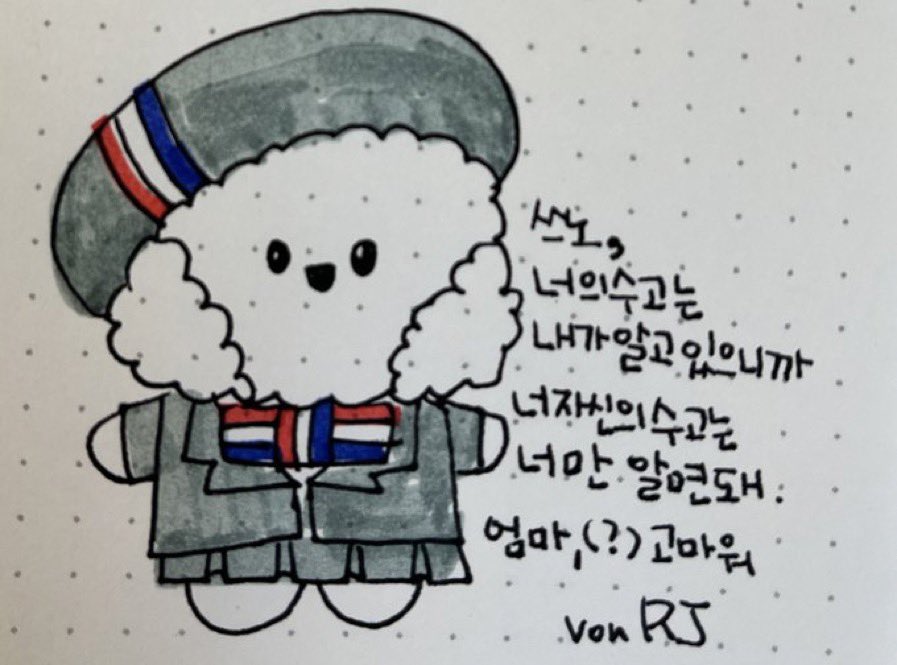 쓰노,
너의수고는
내가알고있으니까
너자신의수고는
너만 알면돼.
엄마,(?)고마워
von RJ